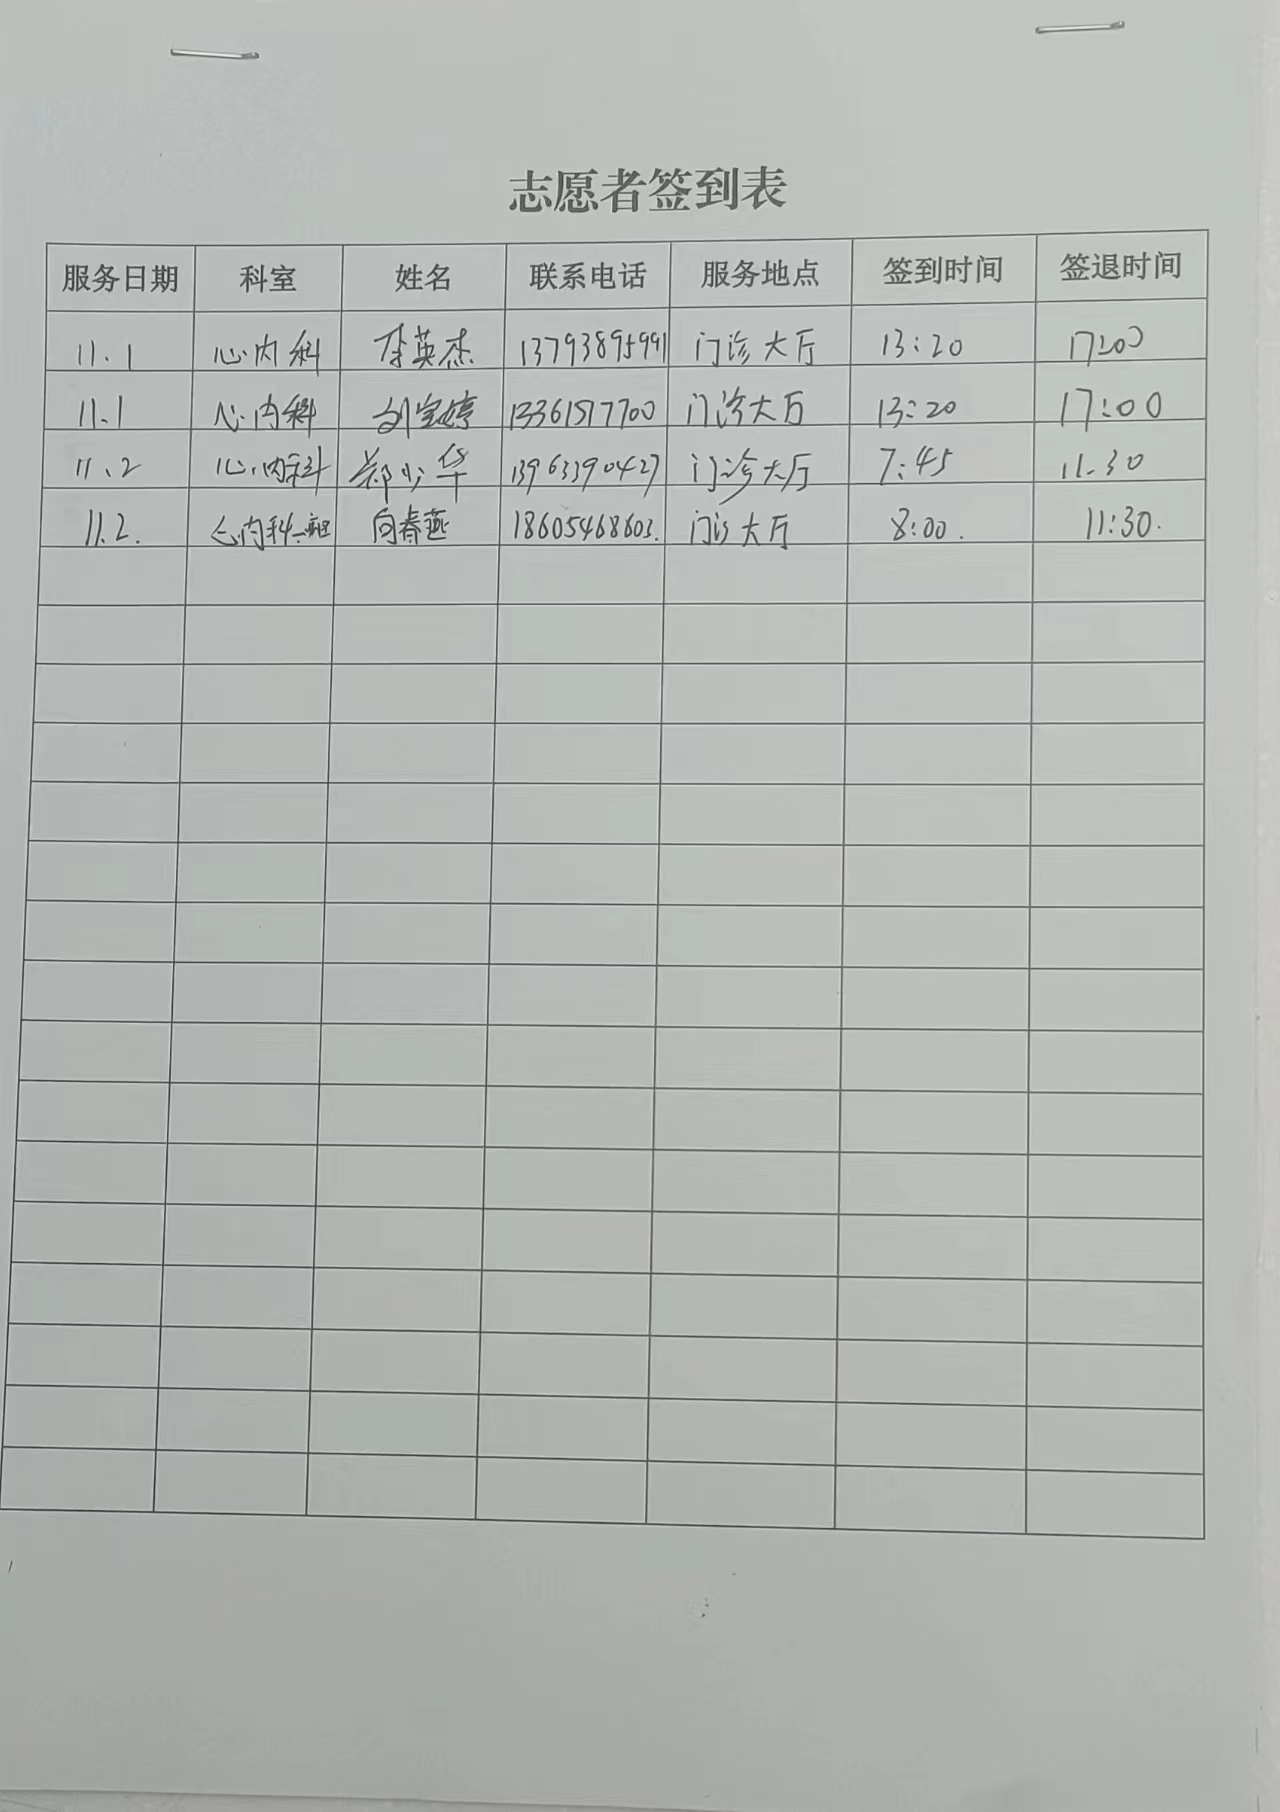 志愿者签到表
服务日期 科室 姓名 联系电话 服务地点 签到时间 签退时间
11.1 心内科 李英杰 13793895991 门诊大厅 13:20 17:00
11.1 心内科 刘宝婷 13361517700 门诊大厅 13:20 17:00
11.2 心内科 郑少华 13963390427 门诊大厅 7:45 11.30
11.2. 心内科一病区 向春燕 18605468603. 门诊大厅 8:00. 11:30.